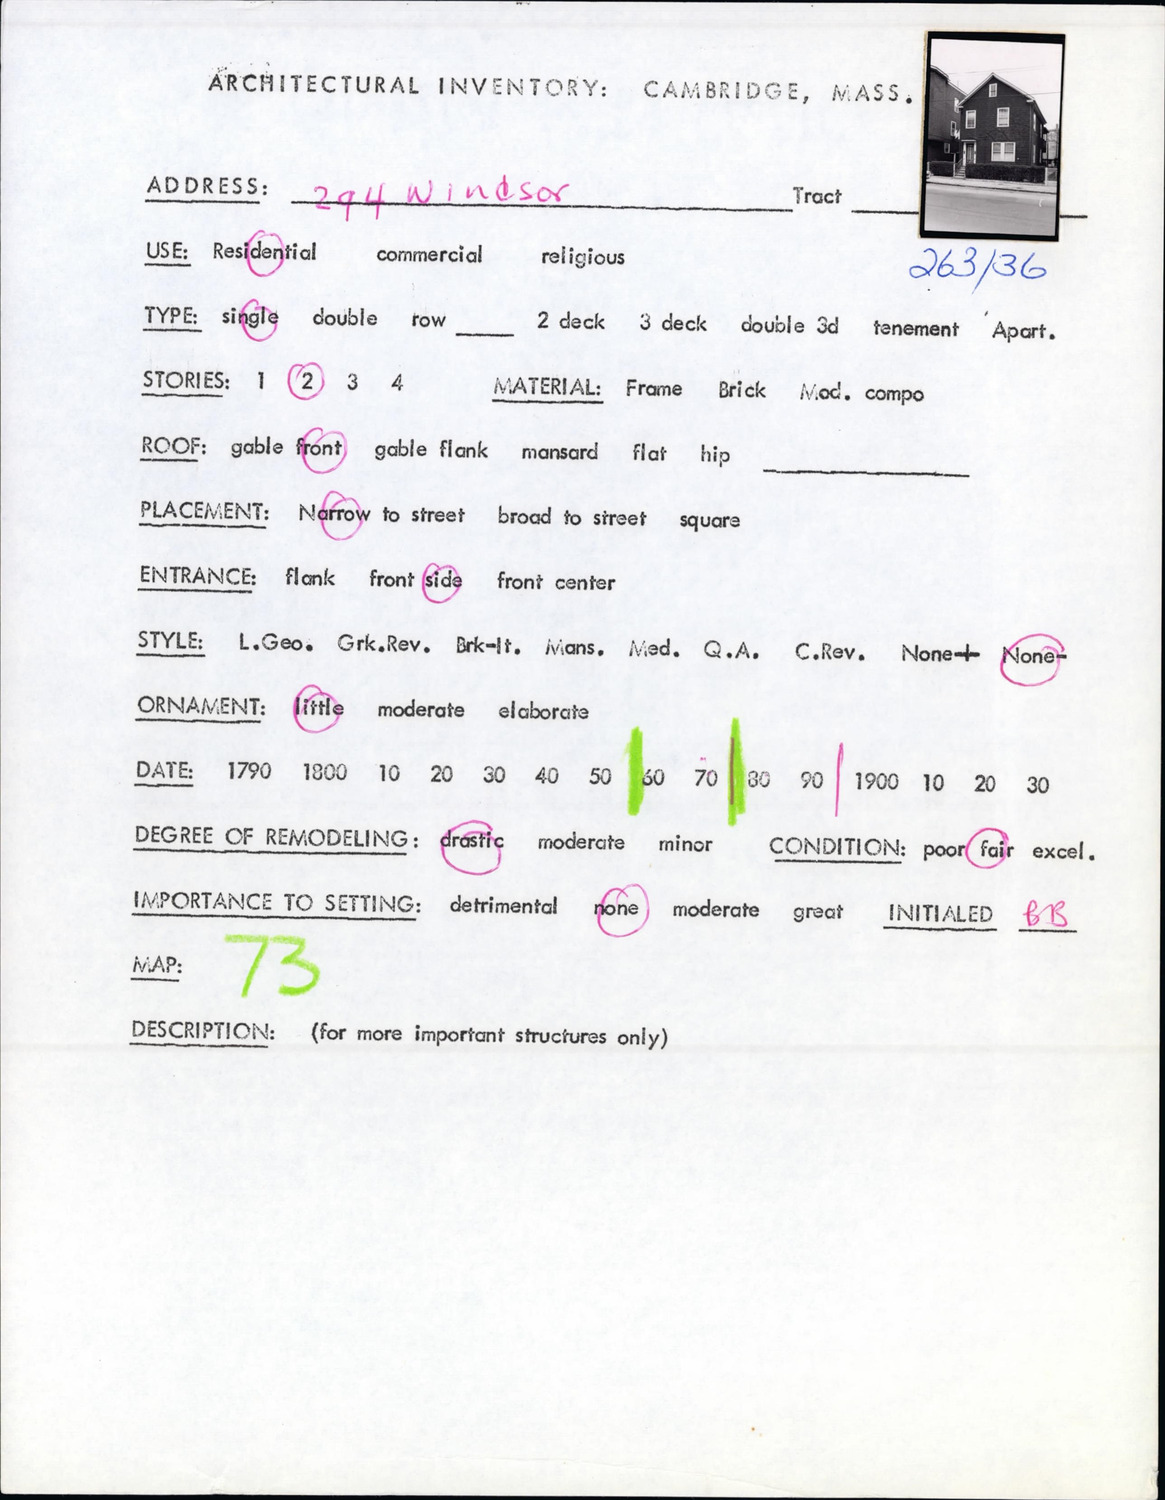 ARCHITECTURAL INVENTORY: CAMBRIDGE, MASS.
ADDRESS: 294 Windsor Tract
263/36
USE: Residential commercial religious
TYPE: single double row 2 deck 3 deck double 3d tenement Apart.
STORIES: 1 2 3 4 MATERIAL: Frame Brick Mod. compo
ROOF: gable front gable flank mansard flat hip
PLACEMENT: Narrow to street broad to street square
ENTRANCE: flank front side front center
STYLE: L.Geo. Grk.Rev. Brk-It. Mans. Med. Q.A. C.Rev. None+ None-
ORNAMENT: little moderate elaborate
DATE: 1790 1800 10 20 30 40 50 60 70 80 90 1900 10 20 30
DEGREE OF REMODELING: drastic moderate minor CONDITION: poor fair excel.
IMPORTANCE TO SETTING: detrimental none moderate great INITIALED BB
MAP: 73
DESCRIPTION: (for more important structures only)